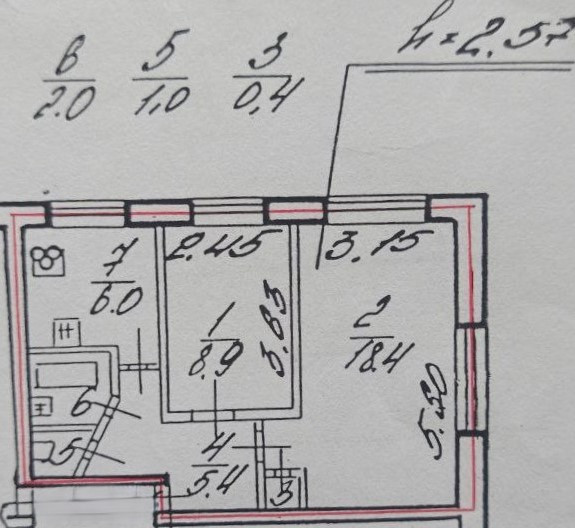 h=2.57
6 5 3
2.0 1,0 0,4
2.45 3.15
7
6.0
1
8.9
3.63
2
18.4
5.50
6
5
4
5.4
3